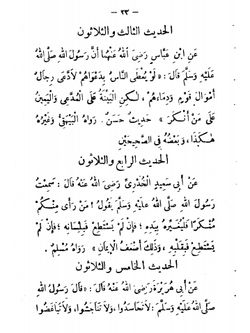 — ٢٣ —
الحديث الثالث والثلاثون
عَنِ ابْنِ عَبَّاسٍ رَضِيَ اللهُ عَنْهُمَا أَنَّ رَسُولَ اللهِ صَلَّى اللهُ
عَلَيْهِ وَسَلَّمَ قَالَ: «لَوْ يُعْطَى النَّاسُ بِدَعْوَاهُمْ لَادَّعَى رِجَالٌ
أَمْوَالَ قَوْمٍ وَدِمَاءَهُمْ، لَكِنِ الْبَيِّنَةُ عَلَى الْمُدَّعِي وَالْيَمِينُ
عَلَى مَنْ أَنْكَرَ» حَدِيثٌ حَسَنٌ. رَوَاهُ الْبَيْهَقِيُّ وَغَيْرُهُ
هٰكَذَا، وَبَعْضُهُ فِي الصَّحِيحَيْنِ
الحديث الرابع والثلاثون
عَنْ أَبِي سَعِيدٍ الْخُدْرِيِّ رَضِيَ اللهُ عَنْهُ قَالَ: سَمِعْتُ
رَسُولَ اللهِ صَلَّى اللهُ عَلَيْهِ وَسَلَّمَ يَقُولُ: «مَنْ رَأَى مِنْكُمْ
مُنْكَرًا فَلْيُغَيِّرْهُ بِيَدِهِ؛ فَإِنْ لَمْ يَسْتَطِعْ فَبِلِسَانِهِ؛ فَإِنْ لَمْ
يَسْتَطِعْ فَبِقَلْبِهِ، وَذٰلِكَ أَضْعَفُ الْإِيمَانِ» رَوَاهُ مُسْلِمٌ.
الحديث الخامس والثلاثون
عَنْ أَبِي هُرَيْرَةَ رَضِيَ اللهُ عَنْهُ قَالَ: قَالَ رَسُولُ اللهِ
صَلَّى اللهُ عَلَيْهِ وَسَلَّمَ: «لَا تَحَاسَدُوا، وَلَا تَنَاجَشُوا، وَلَا تَبَاغَضُوا